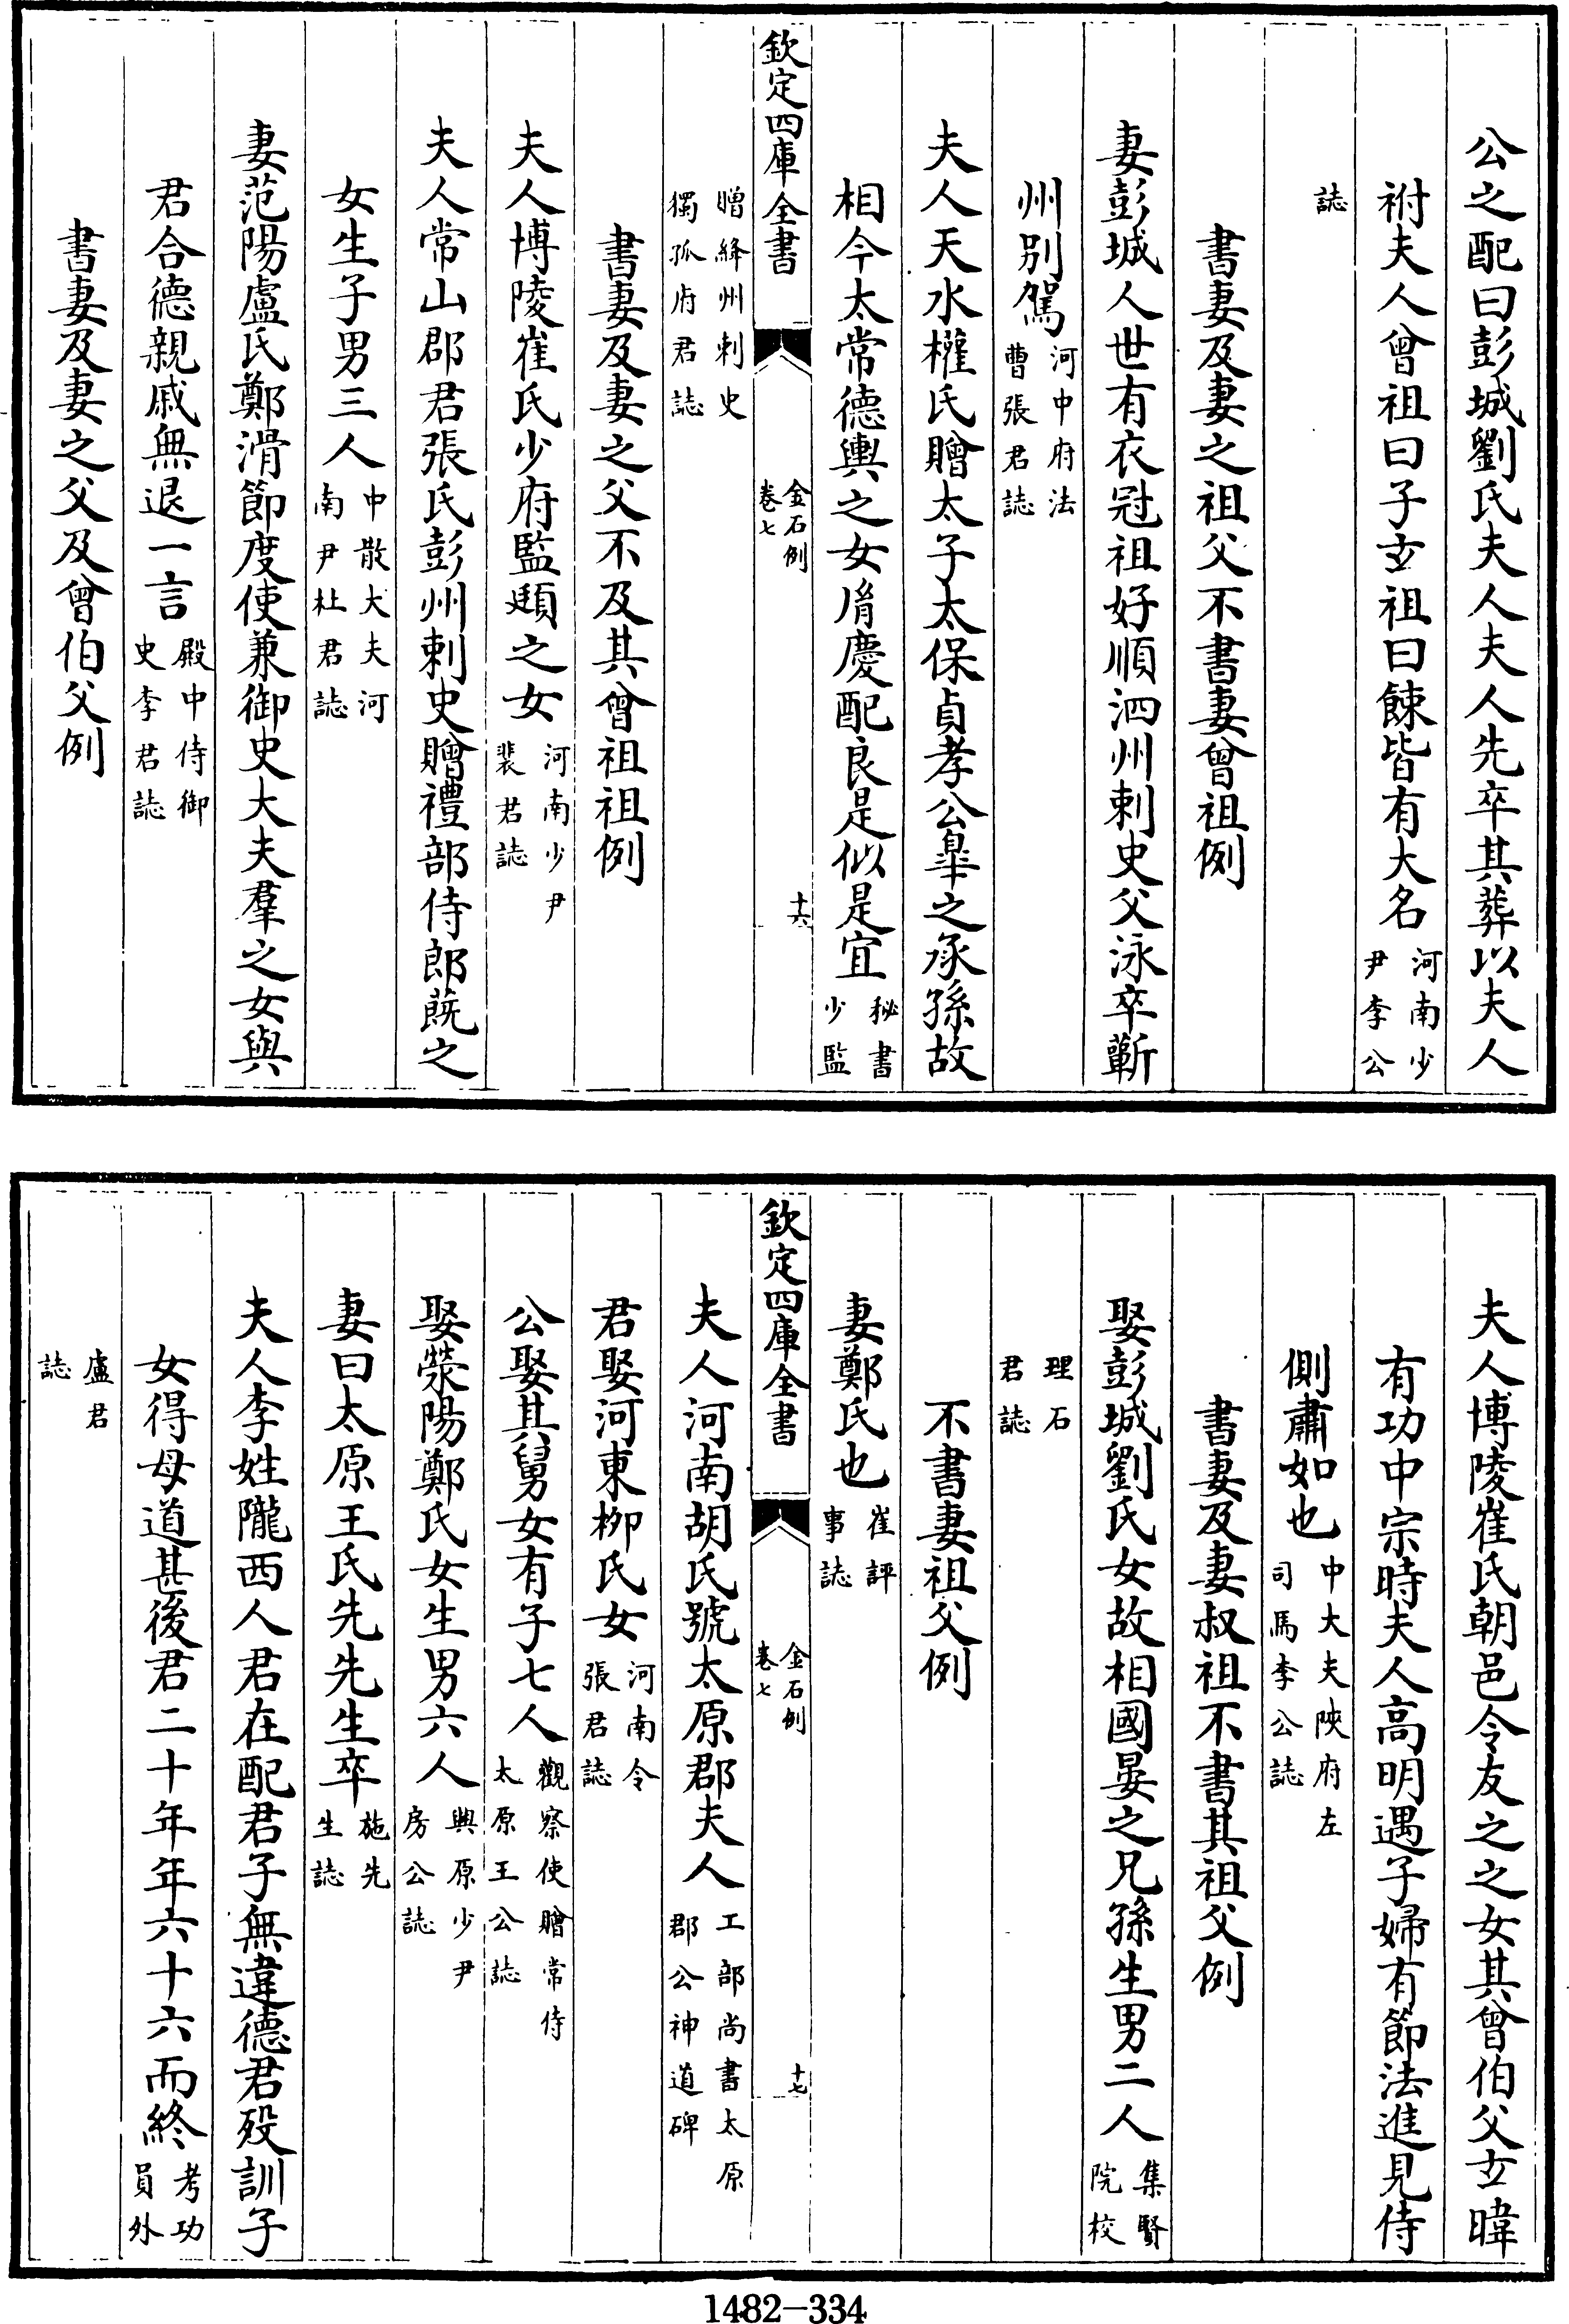 公之配曰彭城劉氏夫人夫人先卒其葬以夫人
祔夫人曾祖曰子玄祖曰餗皆有大名河南少尹李公
誌
書妻及妻之祖父不書妻曾祖例
妻彭城人世有衣冠祖好順泗州刺史父泳卒蘄
州别駕河中府法曹張君誌
夫人天水權氏贈太子太保貞孝公臯之承孫故
相今太常德輿之女胤慶配良是似是宜秘書少監
贈絳州刺史獨孤府君誌
書妻及妻之父不及其曾祖祖例
夫人博陵崔氏少府監頲之女河南少尹裴君誌
夫人常山郡君張氏彭州刺史贈禮部侍郎蔇之
女生子男三人中散大夫河南尹杜君誌
妻范陽盧氏鄭滑節度使兼御史大夫羣之女與
君合德親戚無退一言殿中侍御史李君誌
書妻及妻之父及曾伯父例
欽定四庫全書
金石例
卷七
十六
夫人博陵崔氏朝邑令友之之女其曾伯父玄暐
有功中宗時夫人高明遇子婦有節法進見侍
側肅如也中大夫陝府左司馬李公誌
書妻及妻叔祖不書其祖父例
娶彭城劉氏女故相國晏之兄孫生男二人集賢院校
理石君誌
不書妻祖父例
妻鄭氏也崔評事誌
夫人河南胡氏號太原郡夫人工部尚書太原郡公神道碑
君娶河東柳氏女河南令張君誌
公娶其舅女有子七人觀察使贈常侍太原王公誌
娶滎陽鄭氏女生男六人興原少尹房公誌
妻曰太原王氏先先生卒施先生誌
夫人李姓隴西人君在配君子無違德君歿訓子
女得母道甚後君二十年年六十六而終考功員外
盧君誌
欽定四庫全書
金石例
卷七
十七
1482-334